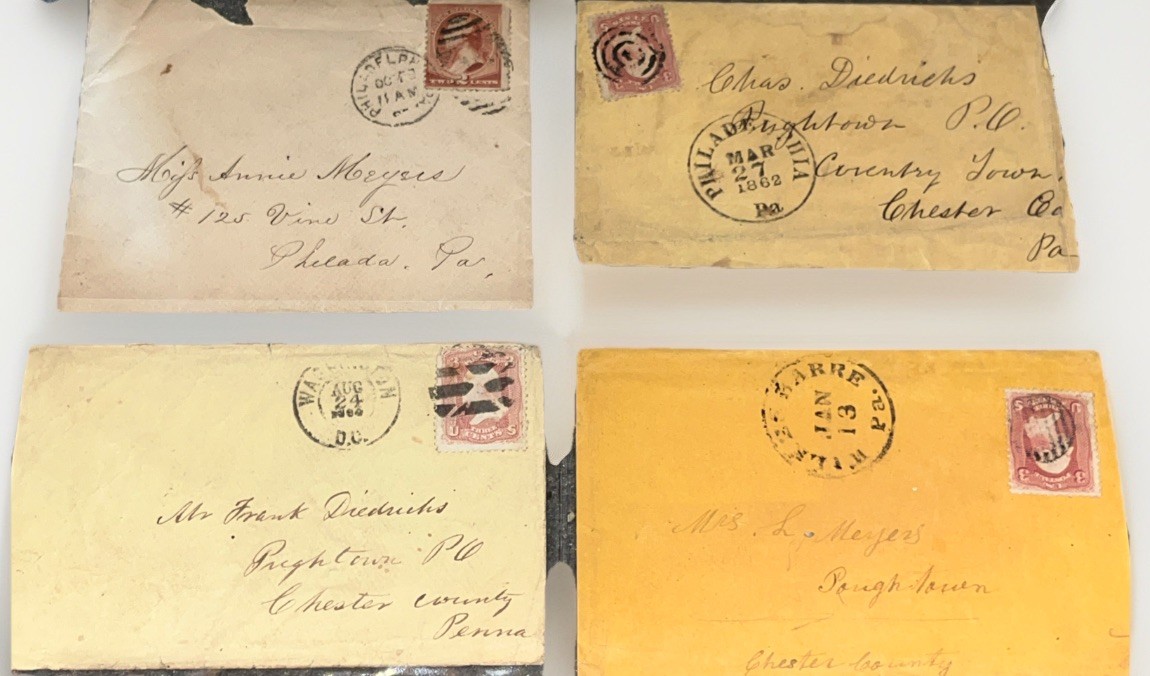 PHILADELPH
11 AM
TWO CENTS
Miss Annie Meyers
# 125 Vine St.
Philada. Pa.
Chas. Diedrichs
Pughtown P.O.
Coventry Town.
Chester Co
Pa
PHILADELPHIA
MAR
27
1862
Pa
WASHINGTON
AUG
24
1864
D.C.
U S
THREE
CENTS
Mr Frank Diedrichs
Pughtown PO
Chester county
Penna
WILKES BARRE Pa
JAN
13
Mrs. L. Meyers
Poughtown
Chester County